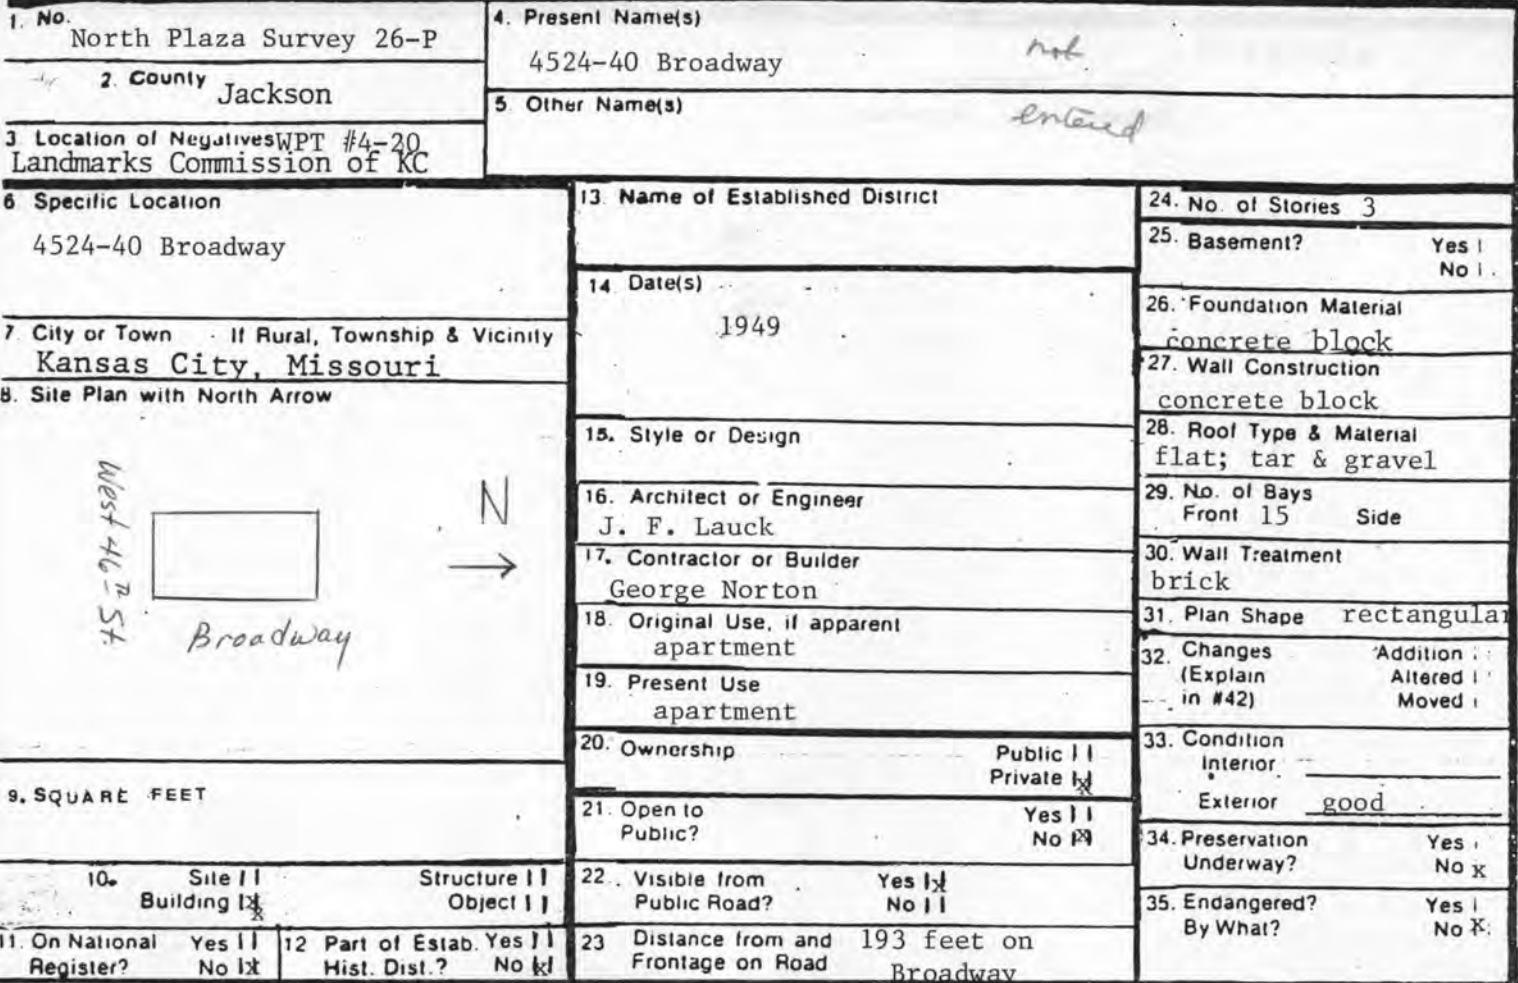 1. No.
North Plaza Survey 26-P
2. County Jackson
3 Location of Negatives WPT #4-20
Landmarks Commission of KC
4. Present Name(s)
4524-40 Broadway
not
5. Other Name(s)
entered
6 Specific Location
4524-40 Broadway
7. City or Town If Rural, Township & Vicinity
Kansas City, Missouri
8. Site Plan with North Arrow
West 46th St
N
Broadway
9. SQUARE FEET
10. Site
Structure
Building x
Object
11. On National Register? Yes
No x
12 Part of Estab. Hist. Dist.? Yes
No x
13. Name of Established District
14. Date(s)
1949
15. Style or Design
16. Architect or Engineer
J. F. Lauck
17. Contractor or Builder
George Norton
18. Original Use, if apparent
apartment
19. Present Use
apartment
20. Ownership
Public
Private x
21. Open to Public?
Yes
No x
22. Visible from Public Road?
Yes x
No
23 Distance from and 193 feet on
Frontage on Road Broadway
24. No. of Stories 3
25. Basement? Yes
No
26. Foundation Material
concrete block
27. Wall Construction
concrete block
28. Roof Type & Material
flat; tar & gravel
29. No. of Bays
Front 15 Side
30. Wall Treatment
brick
31. Plan Shape rectangular
32. Changes Addition
(Explain Altered
in #42) Moved
33. Condition
Interior
Exterior good
34. Preservation Yes
Underway? No x
35. Endangered? Yes
By What? No x